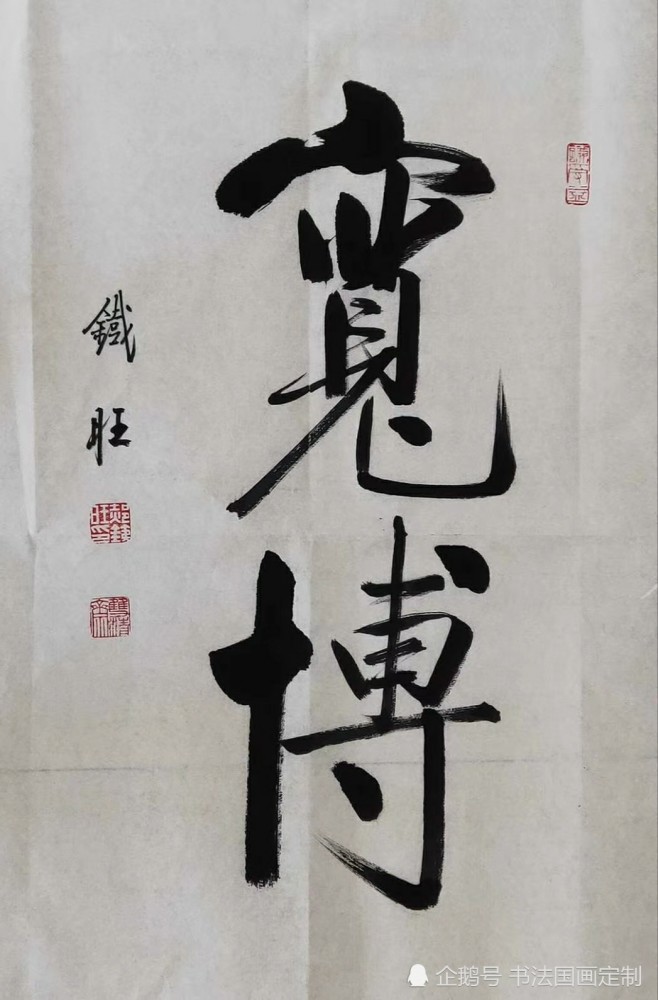 寬博
鐵旺
企鹅号 书法国画定制